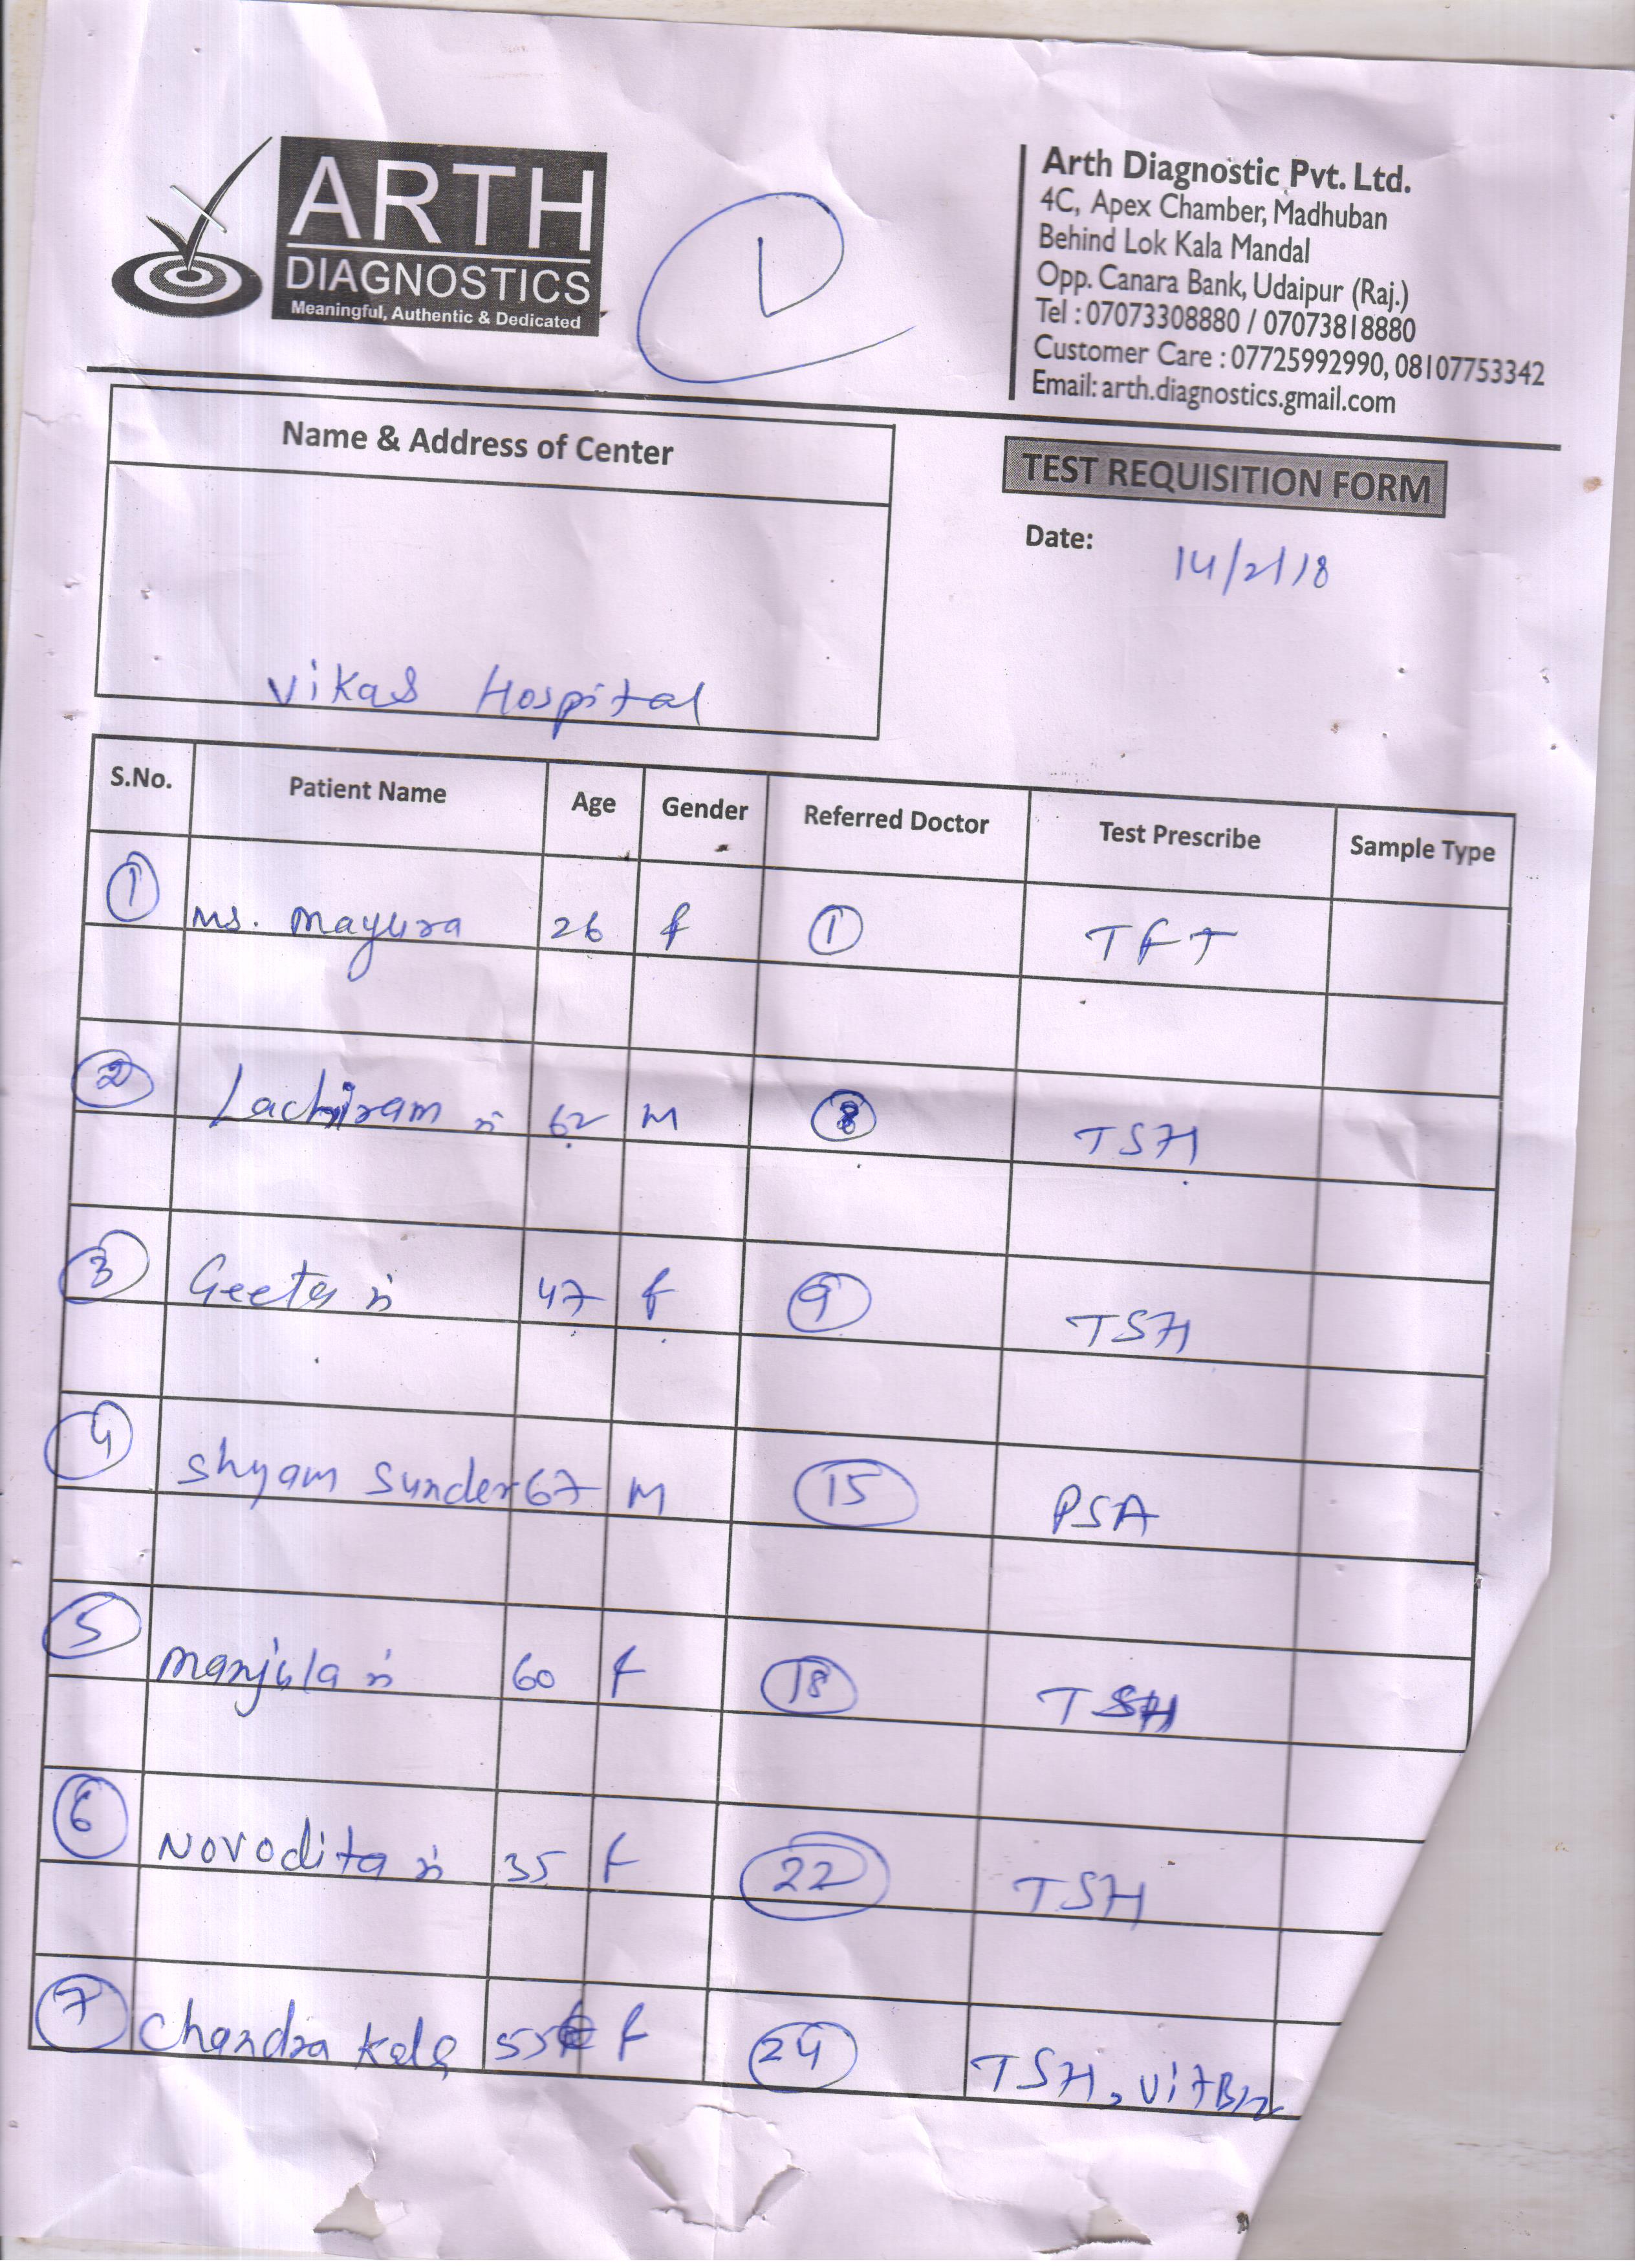 ARTH
DIAGNOSTICS
Meaningful, Authentic & Dedicated
1
Arth Diagnostic Pvt. Ltd.
4C, Apex Chamber, Madhuban
Behind Lok Kala Mandal
Opp. Canara Bank, Udaipur (Raj.)
Tel : 07073308880 / 07073818880
Customer Care : 07725992990, 08107753342
Email: arth.diagnostics.gmail.com
Name & Address of Center
TEST REQUISITION FORM
Date: 14/2/18
Vikas Hospital
S.No. Patient Name Age Gender Referred Doctor Test Prescribe Sample Type
1 Ms. Mayura 26 f 1 TFT
2 Lachiram 62 M 8 TSH
3 Geeta 47 f 9 TSH
4 Shyam Sunder 67 M 15 PSA
5 Manjula 60 f 18 TSH
6 Novodita 35 f 22 TSH
7 Chandra Kala 55 f 24 TSH, Vit B12